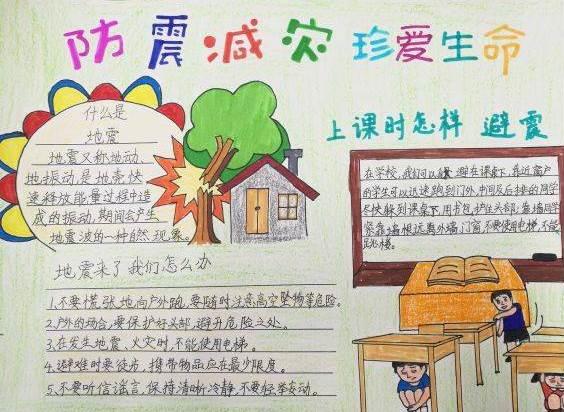 防震减灾 珍爱生命
什么是
地震
地震又称地动、
地振动,是地壳快
速释放能量过程中造
成的振动,期间会产生
地震波的一种自然现象。
上课时怎样 避震
在学校,我们可以 避在课桌下,靠近窗户
的学生可以迅速跑到门外,中间及后排的同学
尽快躲到课桌下,用书包护住头部;靠墙同学
紧靠墙根远离外墙,门窗,不要使用电梯,不能
跳楼。
地震来了我们怎么办
1.不要慌张地向户外跑,要随时注意高空坠物等危险。
2.户外的场合,要保护好头部,避开危险之处。
3.在发生地震、火灾时,不能使用电梯。
4.避难时要徒步,携带物品应在最少限度。
5.不要听信谣言,保持清晰冷静,不要轻举妄动。